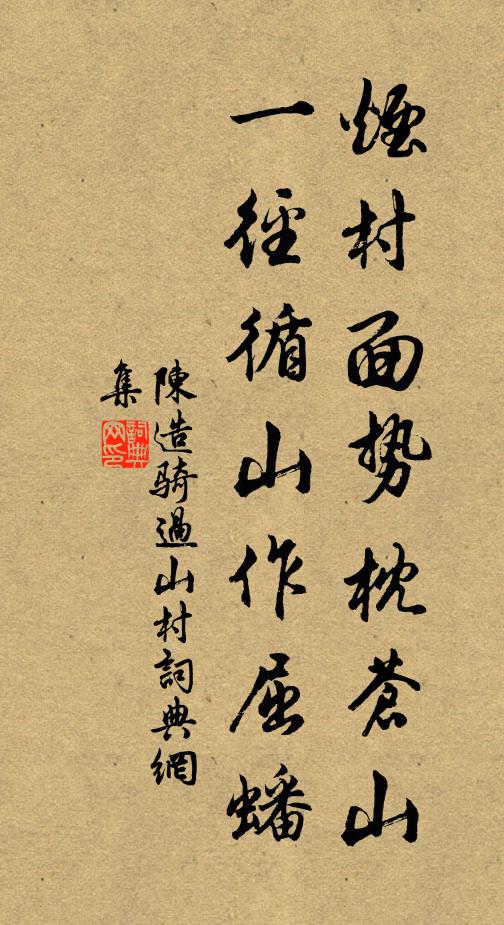 煙村面势枕蒼山
一徑循山作屈蟠
陳造騎過山村詞典網
集
詞典网印